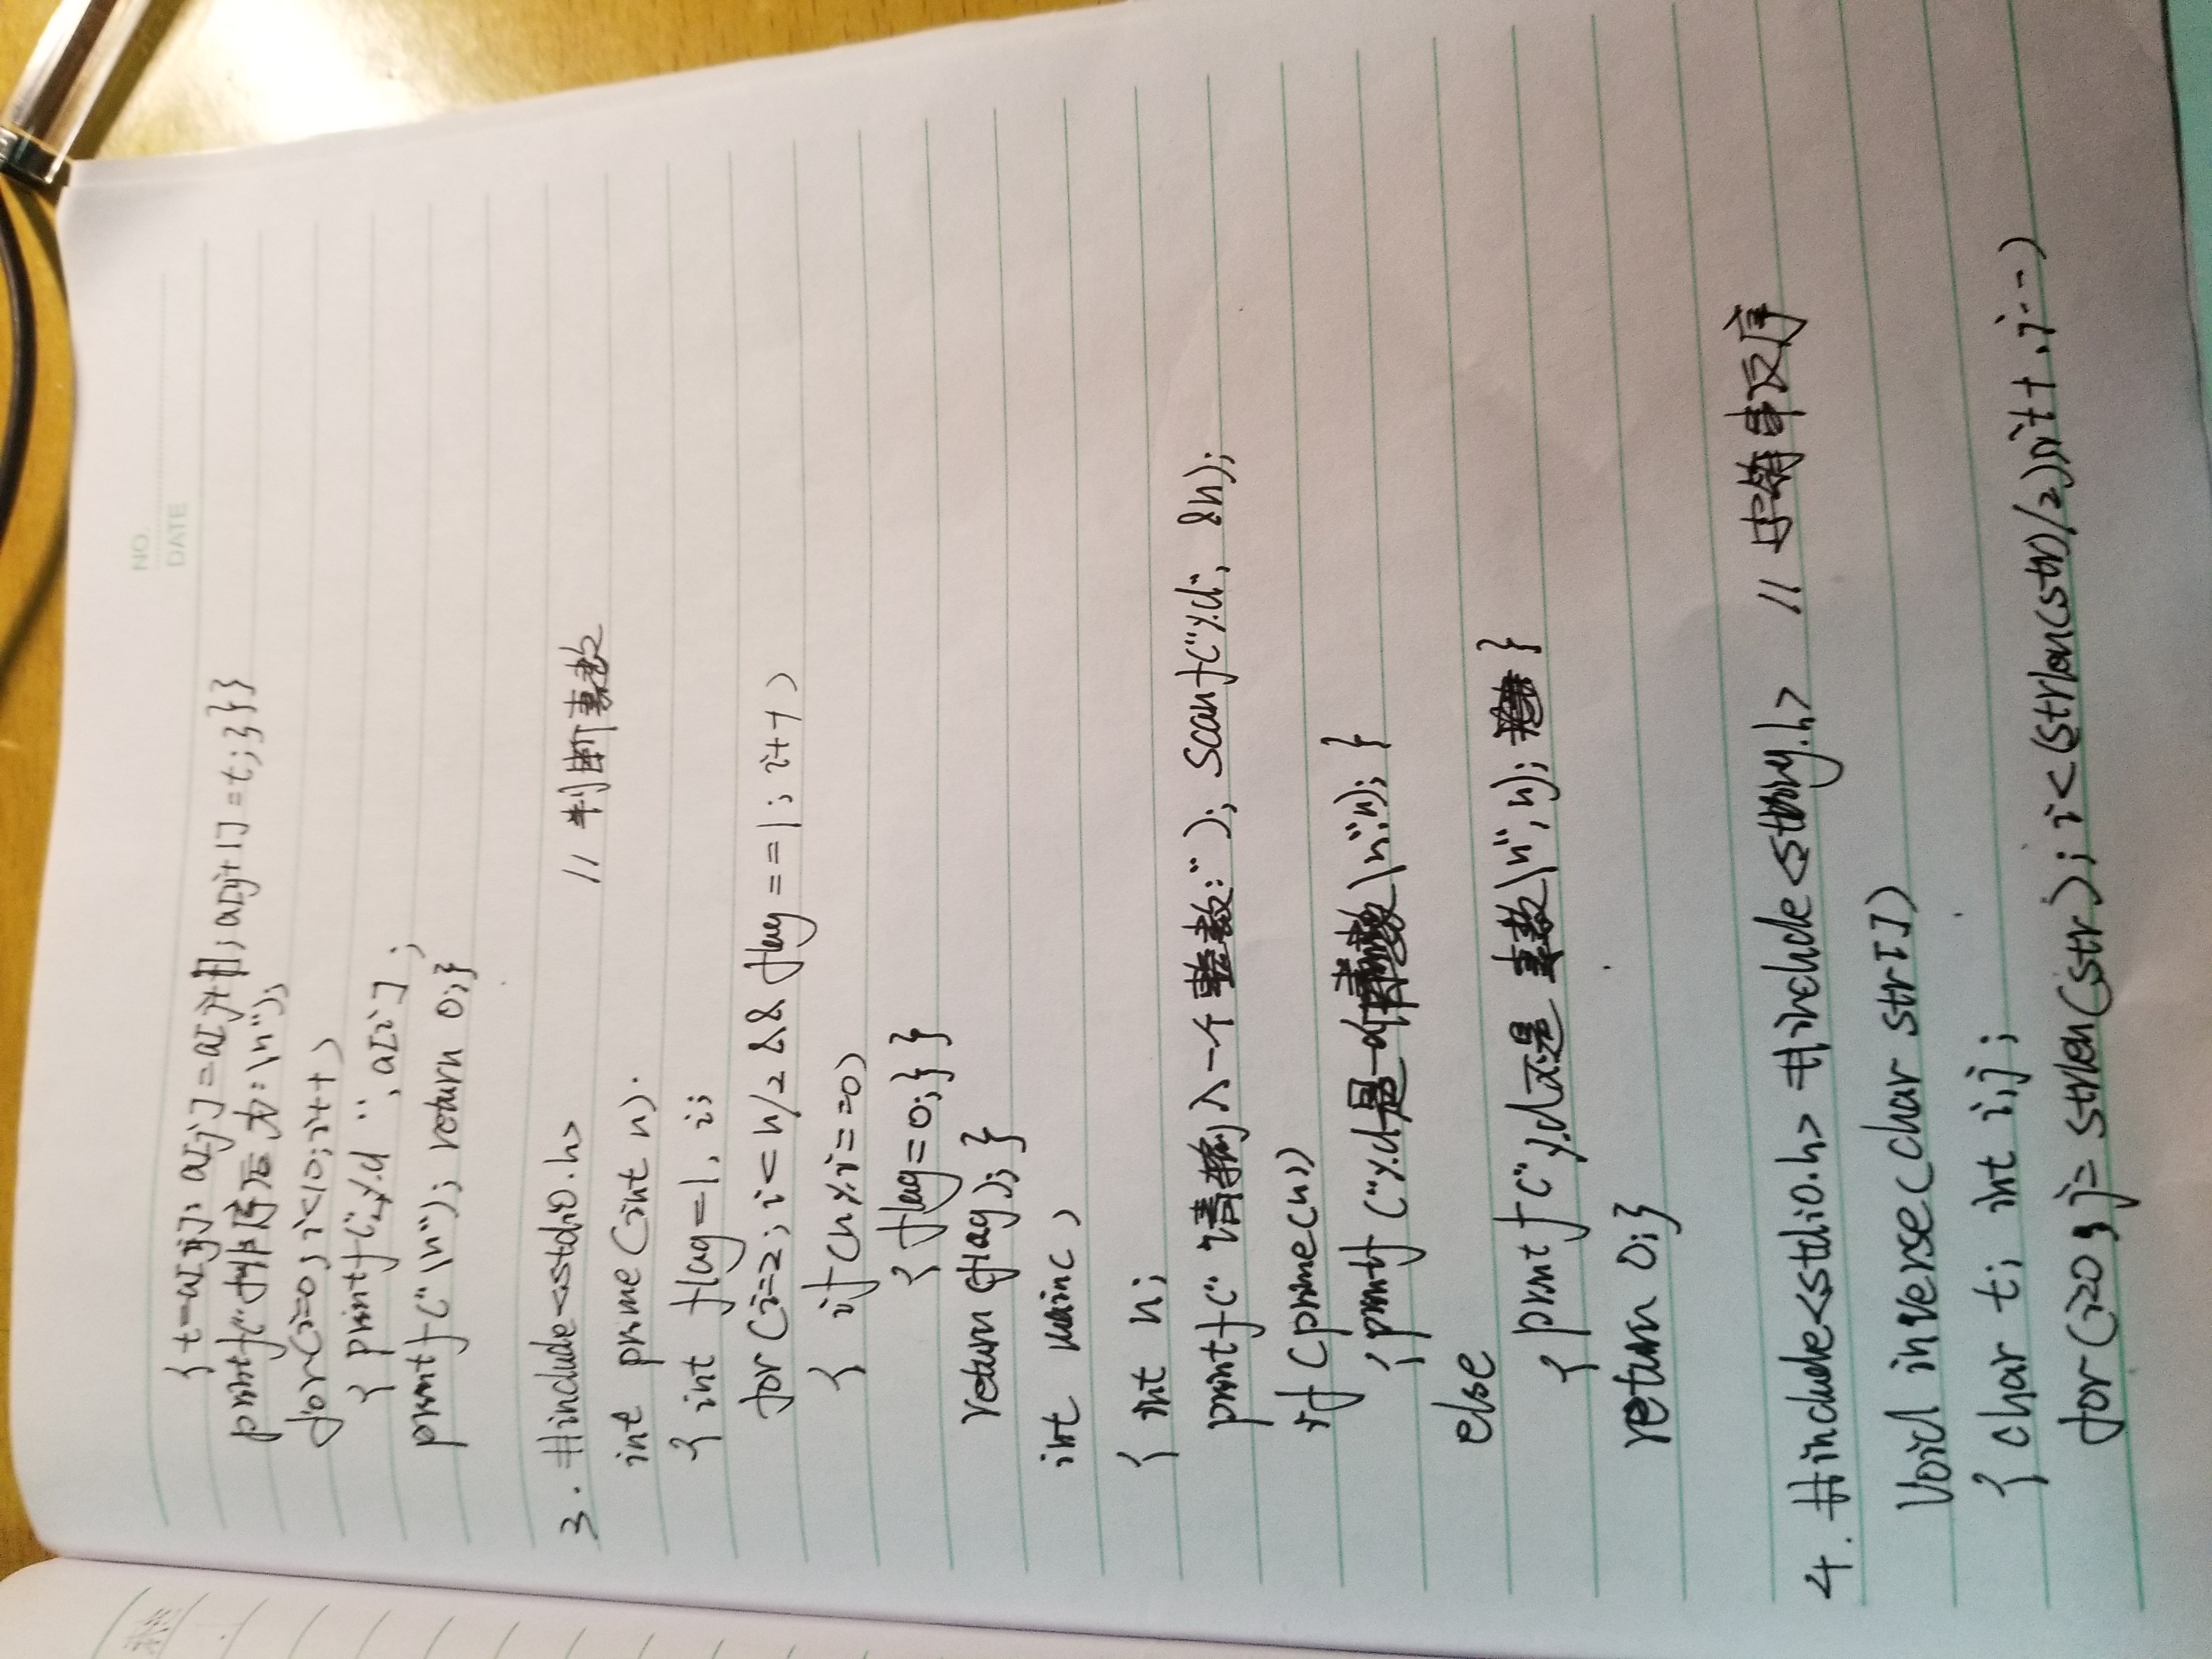 NO.
DATE
{ t=a[j]; a[j]=a[j+1]; a[j+1]=t; }}}
printf("排序后为:\n");
for(i=0; i<10; i++)
{ printf("%d ", a[i];
printf("\n"); return 0;}
3. #include<stdio.h> //判断素数
int prime(int n)
{ int flag=1, i;
for(i=2; i<n/2 && flag==1; i++)
{ if(n%i==0)
{ flag=0;} }
return(flag); }
int main( )
{ int n;
printf("请输入一个整数:"); scanf("%d", &n);
if (prime(n))
{printf("%d是一个素数\n",n); }
else
{ printf("%d不是素数\n", n); }
return 0;}
4. #include<stdio.h> #include<string.h> //字符串反序
Void inverse(char str[])
{ char t; int i,j;
for(i=0, j=strlen(str); i<(strlen(str)/2);i++, j--)